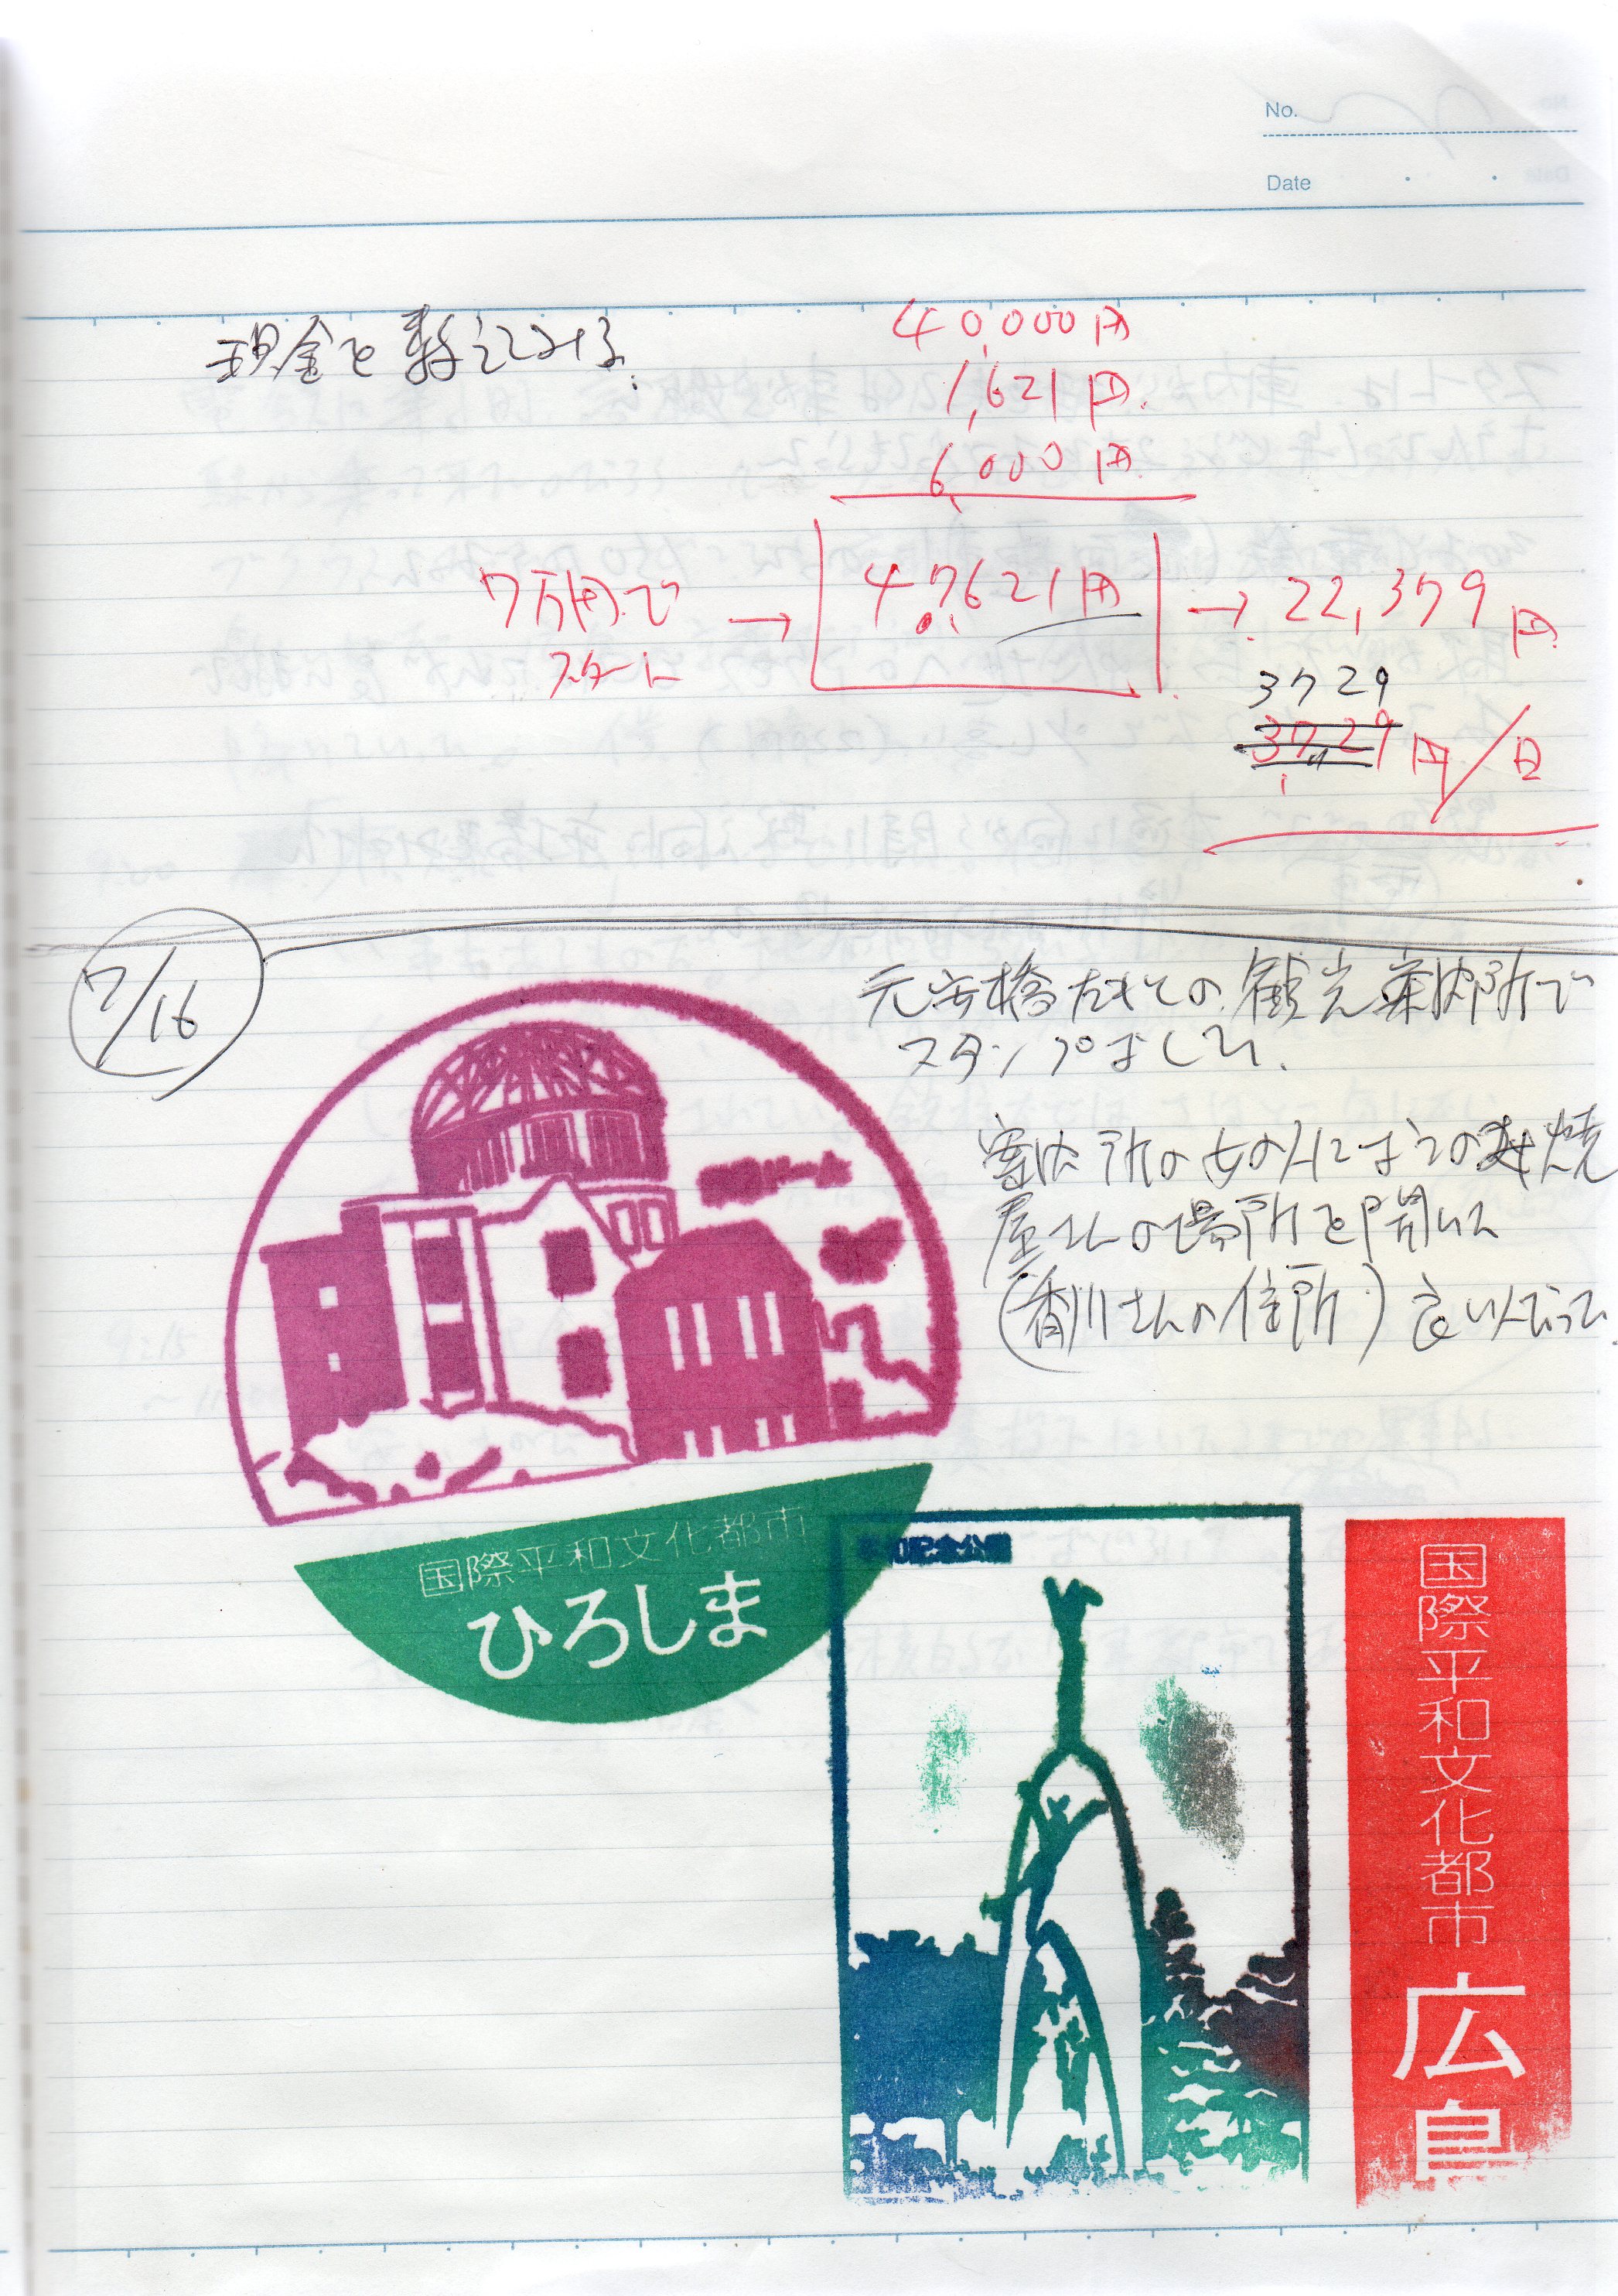 No.
Date
現金を数えてみる.
40,000円
1,621円.
6,000円
7万円で
スタート
→ 47,621円 → 22,379円
3729
3729円/日
7/16
元安橋たもとの観光案内所で
スタンプおした.
案内所の女の人に
屋さんの場所を聞いた
(香川さんの住所)
原爆ドーム
国際平和文化都市
ひろしま
平和記念公園
国際平和文化都市 広島